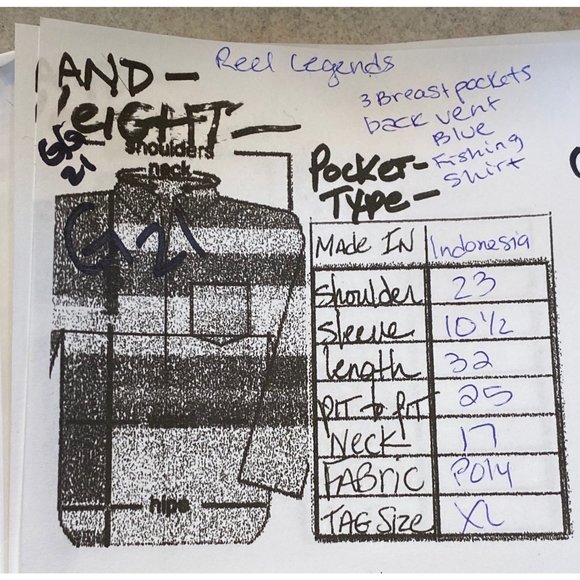 AND - Reel Legends
EIGHT -
3 Breast pockets
back vent
Blue
Fishing
Shirt
G/G
21
shoulders
neck
G 21
hips
Pocket-
Type-
MADE IN Indonesia
shoulder 23
sleeve 10 1/2
length 32
PIT to PIT 25
Neck 17
FABRIC Poly
TAG Size XL